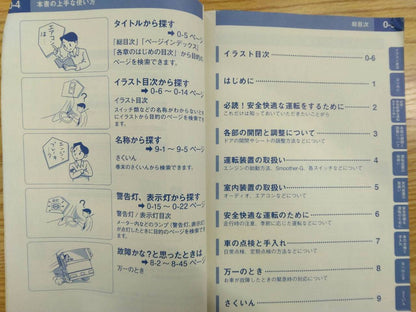 0-4 本書の上手な使い方
タイトルから探す
➡ 0-5 ページ
「総目次」「ページインデックス」
「各章のはじめの目次」から目的の
ページを検索できます。
イラスト目次から探す
➡ 0-6 ～ 0-14 ページ
イラスト目次
スイッチ類などの名称がわからないとき
にイラストから目的のページを検索でき
名称から探す
➡ 9-1 ～ 9-5 ページ
さくいん
巻末のさくいんから検索できます。
警告灯、表示灯から探す
➡ 0-15 ～ 0-22 ページ
警告灯/表示灯目次
メーター内などのランプ(警告灯、表示灯)
が点灯したときに目的のページを検索でき
故障かな?と思ったときは
➡ 8-2 ～ 8-45 ページ
万一のとき
総目次
イラスト目次 0-6
はじめに 1
必読!安全快適な運転をするために 2
これだけは知っておいていただきたいことがら
各部の開閉と調整について 3
ドアの開閉やシートの調整方法などについて
運転装置の取扱い 4
エンジンの始動方法、Smoother-G、各スイッチなどについて
室内装置の取扱い 5
オーディオ、エアコンなどについて
安全快適な運転のために 6
走行時の注意、季節に応じた運転などについて
車の点検と手入れ 7
日常点検、定期点検の方法などについて
万一のとき 8
お車が故障したときの緊急時の対応について
さくいん 9